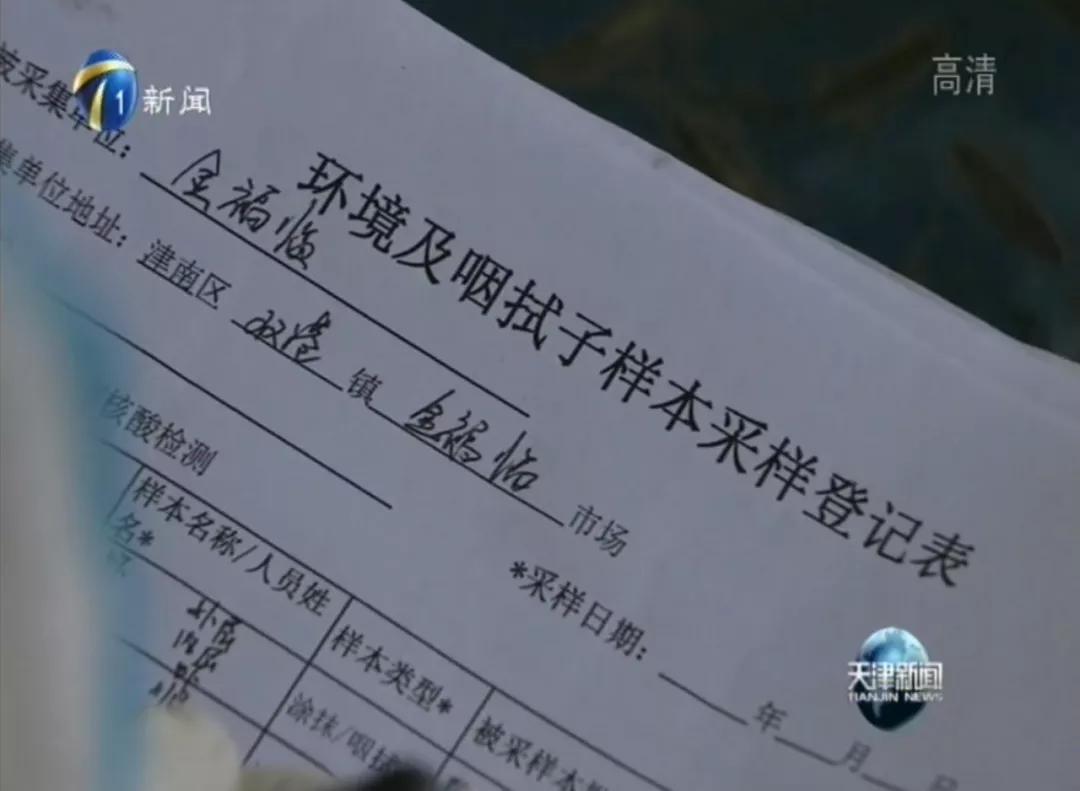 1 新闻
高清
环境及咽拭子样本采样登记表
被采集单位：金福临
集单位地址：津南区 双港 镇 金福临 市场
*采样日期： 年 月 日
核酸检测
样本名称/人员姓名*
样本类型*
被采样本
涂抹/咽拭
天津新闻
TIANJIN NEWS